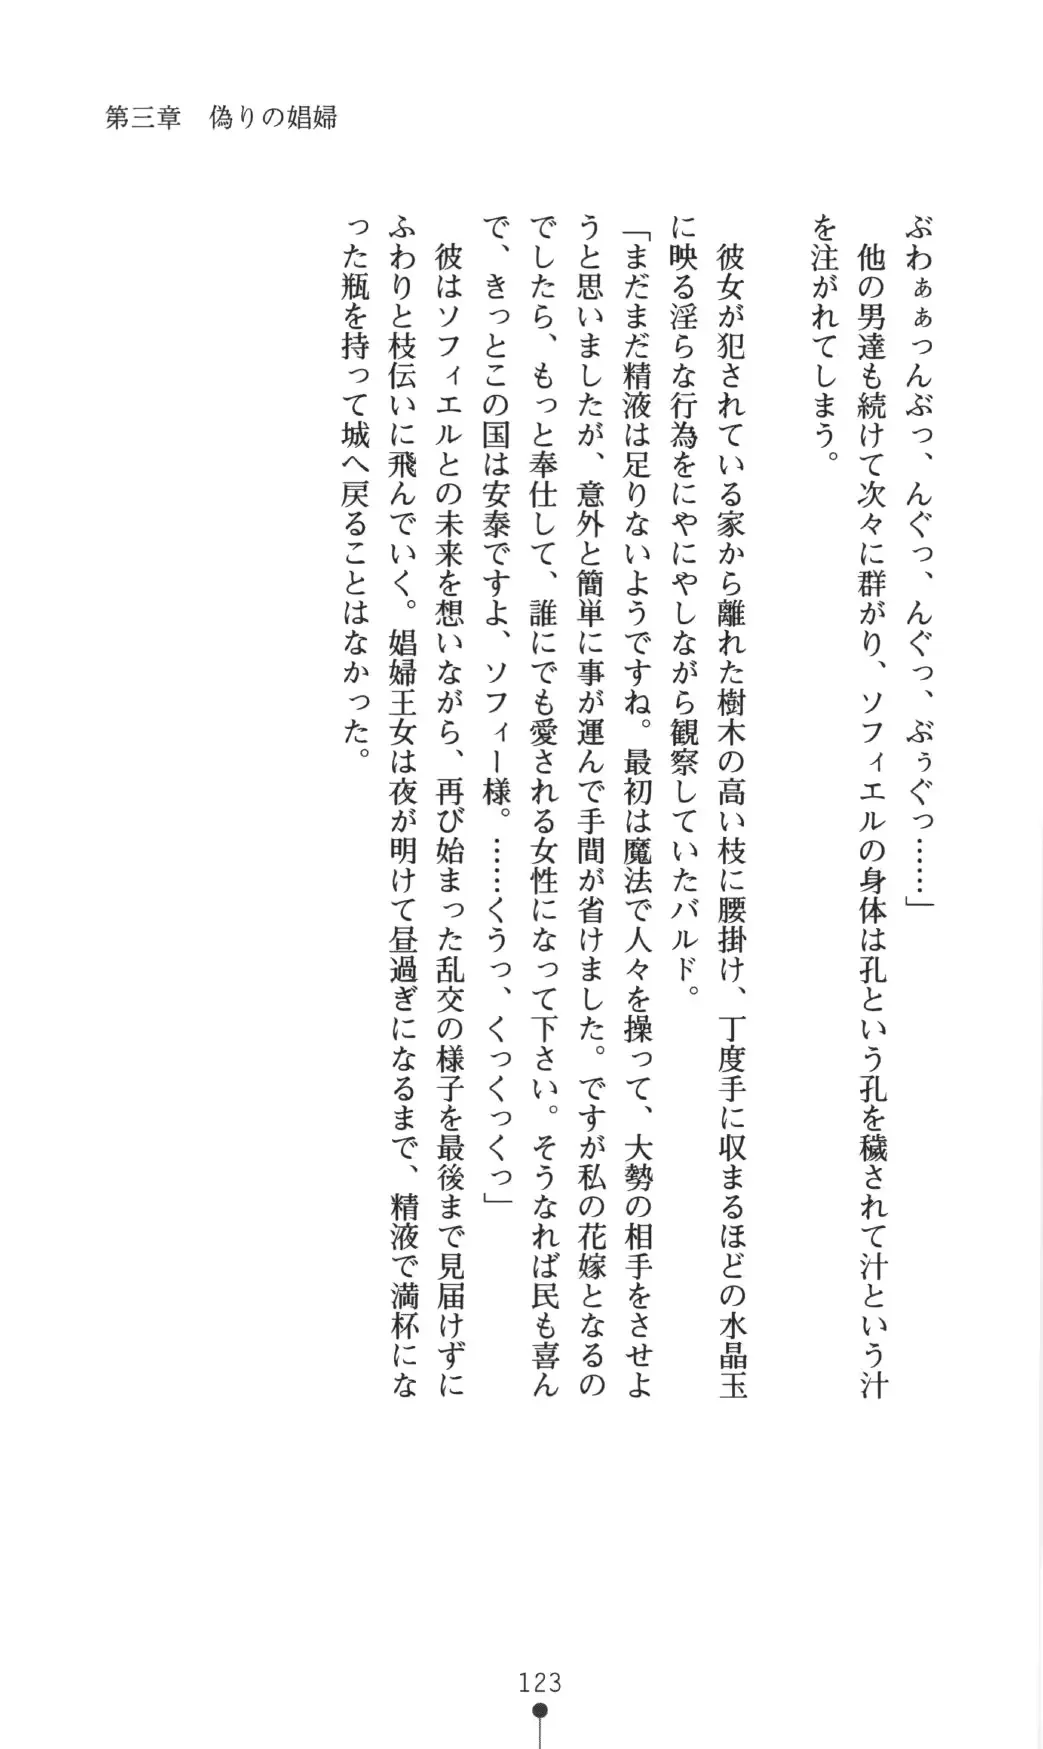 第三章　偽りの娼婦
ぶわぁぁっんぶっ、んぐっ、んぐっ、ぶぅぐっ……」
　他の男達も続けて次々に群がり、ソフィエルの身体は孔という孔を穢されて汁という汁
を注がれてしまう。
　彼女が犯されている家から離れた樹木の高い枝に腰掛け、丁度手に収まるほどの水晶玉
に映る淫らな行為をにやにやしながら観察していたバルド。
「まだまだ精液は足りないようですね。最初は魔法で人々を操って、大勢の相手をさせよ
うと思いましたが、意外と簡単に事が運んで手間が省けました。ですが私の花嫁となるの
でしたら、もっと奉仕して、誰にでも愛される女性になって下さい。そうなれば民も喜ん
で、きっとこの国は安泰ですよ、ソフィー様。……くうっ、くっくっくっ」
　彼はソフィエルとの未来を想いながら、再び始まった乱交の様子を最後まで見届けずに
ふわりと枝伝いに飛んでいく。娼婦王女は夜が明けて昼過ぎになるまで、精液で満杯にな
った瓶を持って城へ戻ることはなかった。
123